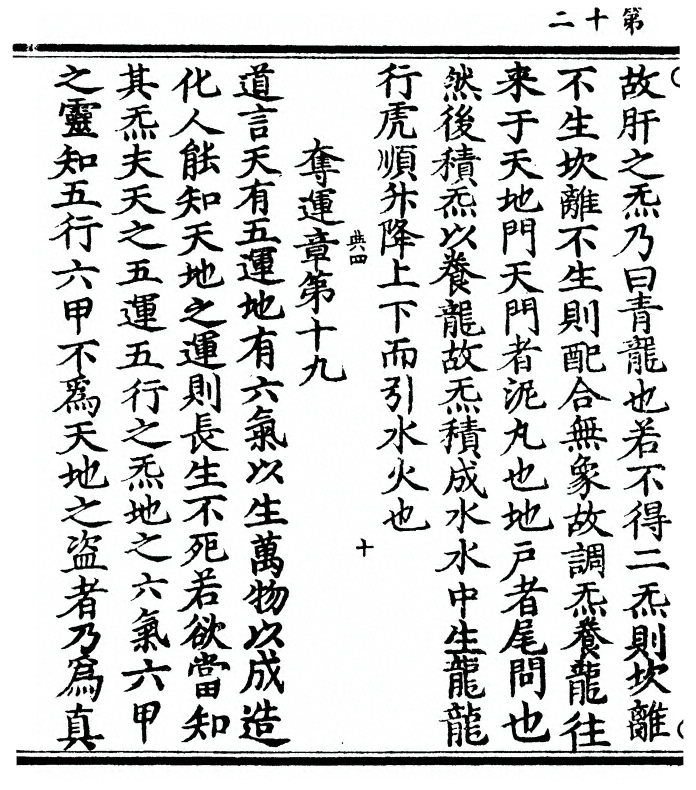 第十二
故肝之炁乃曰青龍也若不得二炁則坎離
不生坎離不生則配合無象故調炁養龍往
来于天地門天門者泥丸也地戸者尾閭也
然後積炁以養龍故炁積成水水中生龍龍
行虎順升降上下而引水火也
典四
十
奪運章第十九
道言天有五運地有六氣以生萬物以成造
化人能知天地之運則長生不死若欲當知
其炁夫天之五運五行之炁地之六氣六甲
之靈知五行六甲不爲天地之盗者乃爲真